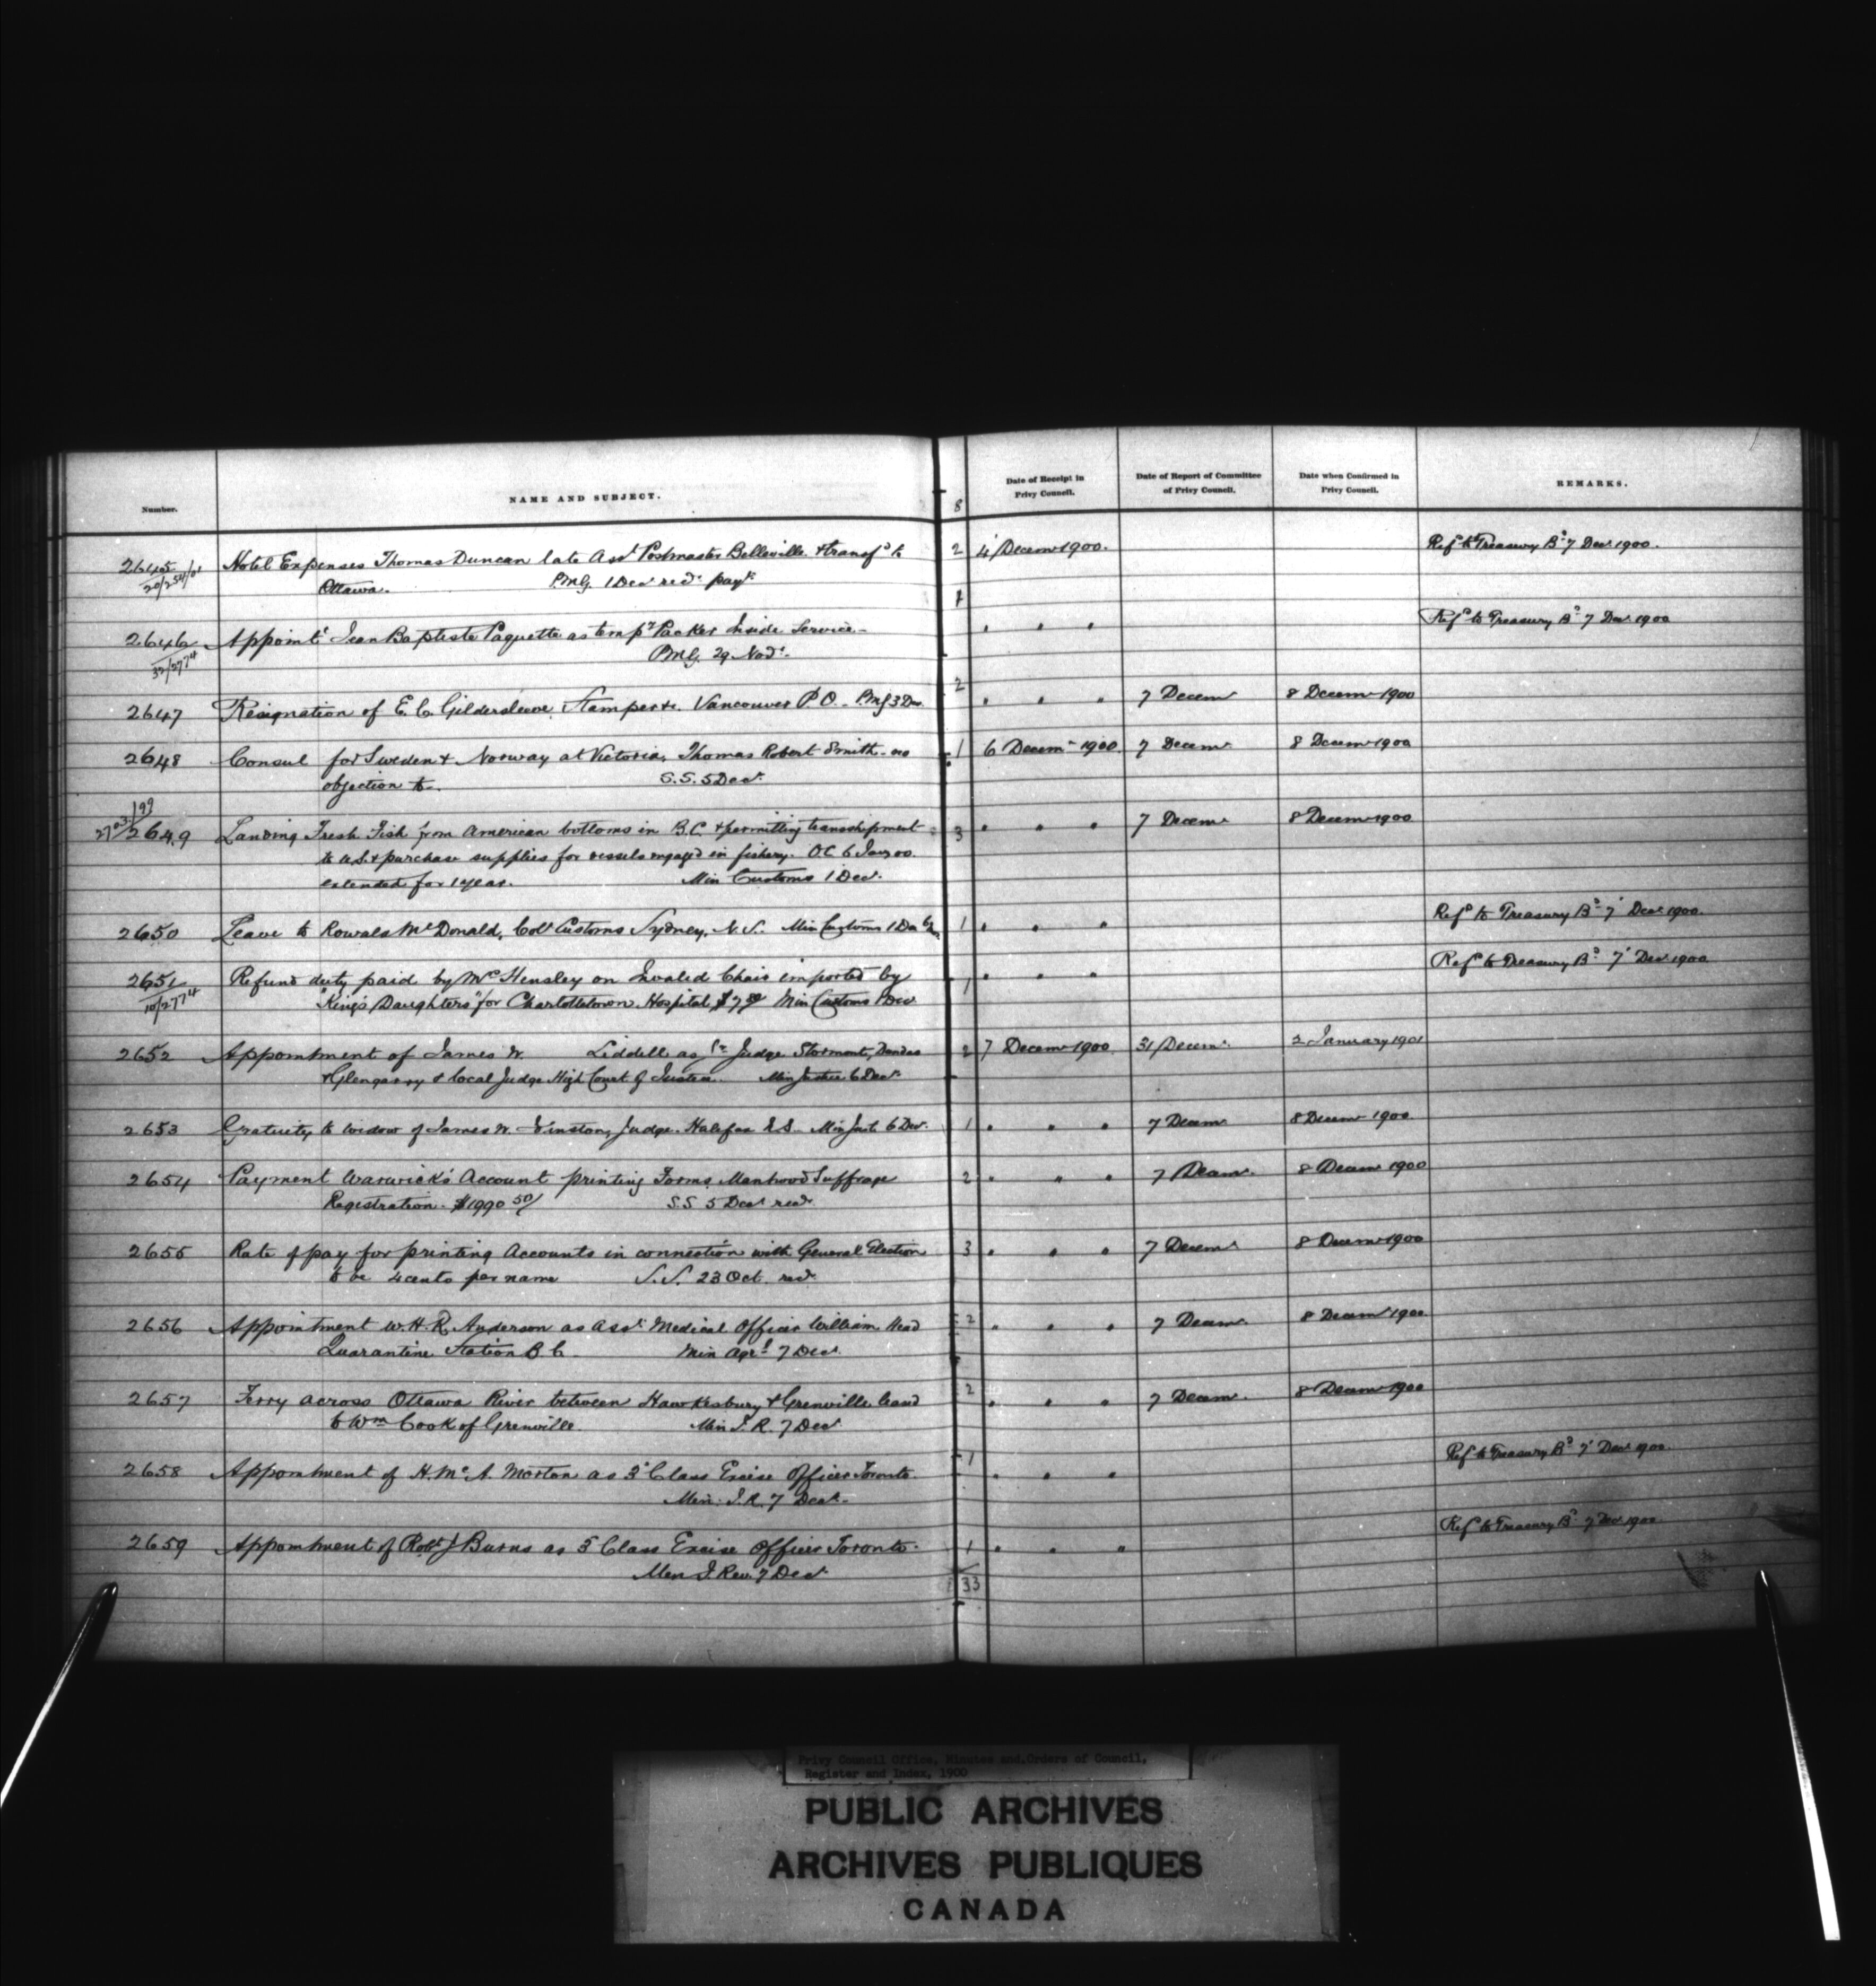 Number.
NAME AND SUBJECT.
8
Date of Receipt in Privy Council.
Date of Report of Committee of Privy Council.
Date when Confirmed in Privy Council.
REMARKS.
2645 Hotel Expenses Thomas Duncan late Asst Postmaster Belleville & transfd to 2 4 Decemr 1900. Refd to Treasury Bd 7 Decr 1900.
20/254/01 Ottawa. P.M.G. 1 Decr recd payt
1
2646 Appointt Jean Baptiste Paquette as tempy Packer Inside Service - " " " Refd to Treasury Bd 7 Decr 1900
32/2774 P.M.G. 29 Novr
2
2647 Resignation of E. C. Gildersleeve, Stamper &c. Vancouver P.O. - P.M.G 3 Dec. " " " 7 Decemr 8 Decemr 1900
2648 Consul for Sweden & Norway at Victoria, Thomas Robert Smith - no 1 6 Decemr 1900. 7 Decemr 8 Decemr 1900
objection to -. S.S. 5 Decr
199
2703/2649 Landing Fresh Fish from American bottoms in B.C. & permitting transshipment 3 " " " 7 Decemr 8 Decemr 1900
to U.S. & purchase supplies for vessels engaged in fishery. O.C. 6 Jany 00.
extended for 1 year. Min Customs 1 Decr.
2650 Leave to Rowald McDonald, Collr Customs Sydney, N.S. Min Customs 1 Dec 1 " " " Refd to Treasury Bd 7 Decr 1900.
2651 Refund duty paid by Mc Hensley on Invalid Chair imported by 1 " " " Refd to Treasury Bd 7 Decr 1900
10/2774 "King's Daughters" for Charlottetown Hospital, $7 Min Customs 1 Decr
2652 Appointment of James W. Liddell as Jr Judge Stormont, Dundas 2 7 Decemr 1900 31 Decemr 2 January 1901
& Glengarry & local Judge High Court of Justice. Min Justice 6 Decr
2653 Gratuity to widow of James W. Johnston, Judge. Halifax N.S. Min Just 6 Decr. 1 " " " 7 Decemr 8 Decemr 1900
2654 Payment Warwick's Account printing Forms, Manhood Suffrage 2 " " " 7 Decemr 8 Decemr 1900
Registration. $1990 50/ S.S 5 Decr recd
2655 Rate of pay for printing Accounts in connection with General Election 3 " " " 7 Decemr 8 Decemr 1900
to be 4 cents per name S.S. 23 Oct. recd
2656 Appointment W. H. R. Anderson as Asst Medical Officer William Head 2 " " " 7 Decemr 8 Decemr 1900
Quarantine Station B.C. Min Agre 7 Decr
2657 Ferry across Ottawa River between Hawkesbury & Grenville leased 2 " " " 7 Decemr 8 Decemr 1900
to Wm Cook of Grenville. Min I.R. 7 Decr
2658 Appointment of H. Mc A. Morton as 3d Class Excise Officer Toronto. 1 " " " Refd to Treasury Bd 7 Decr 1900
Min: I.R. 7 Decr.
2659 Appointment of Robt J Burns as 3d Class Excise Officer Toronto. 1 " " " Refd to Treasury Bd 7 Decr 1900
Min I. Rev. 7 Decr
33
Privy Council Office, Minutes and Orders of Council,
Register and Index, 1900
PUBLIC ARCHIVES
ARCHIVES PUBLIQUES
CANADA